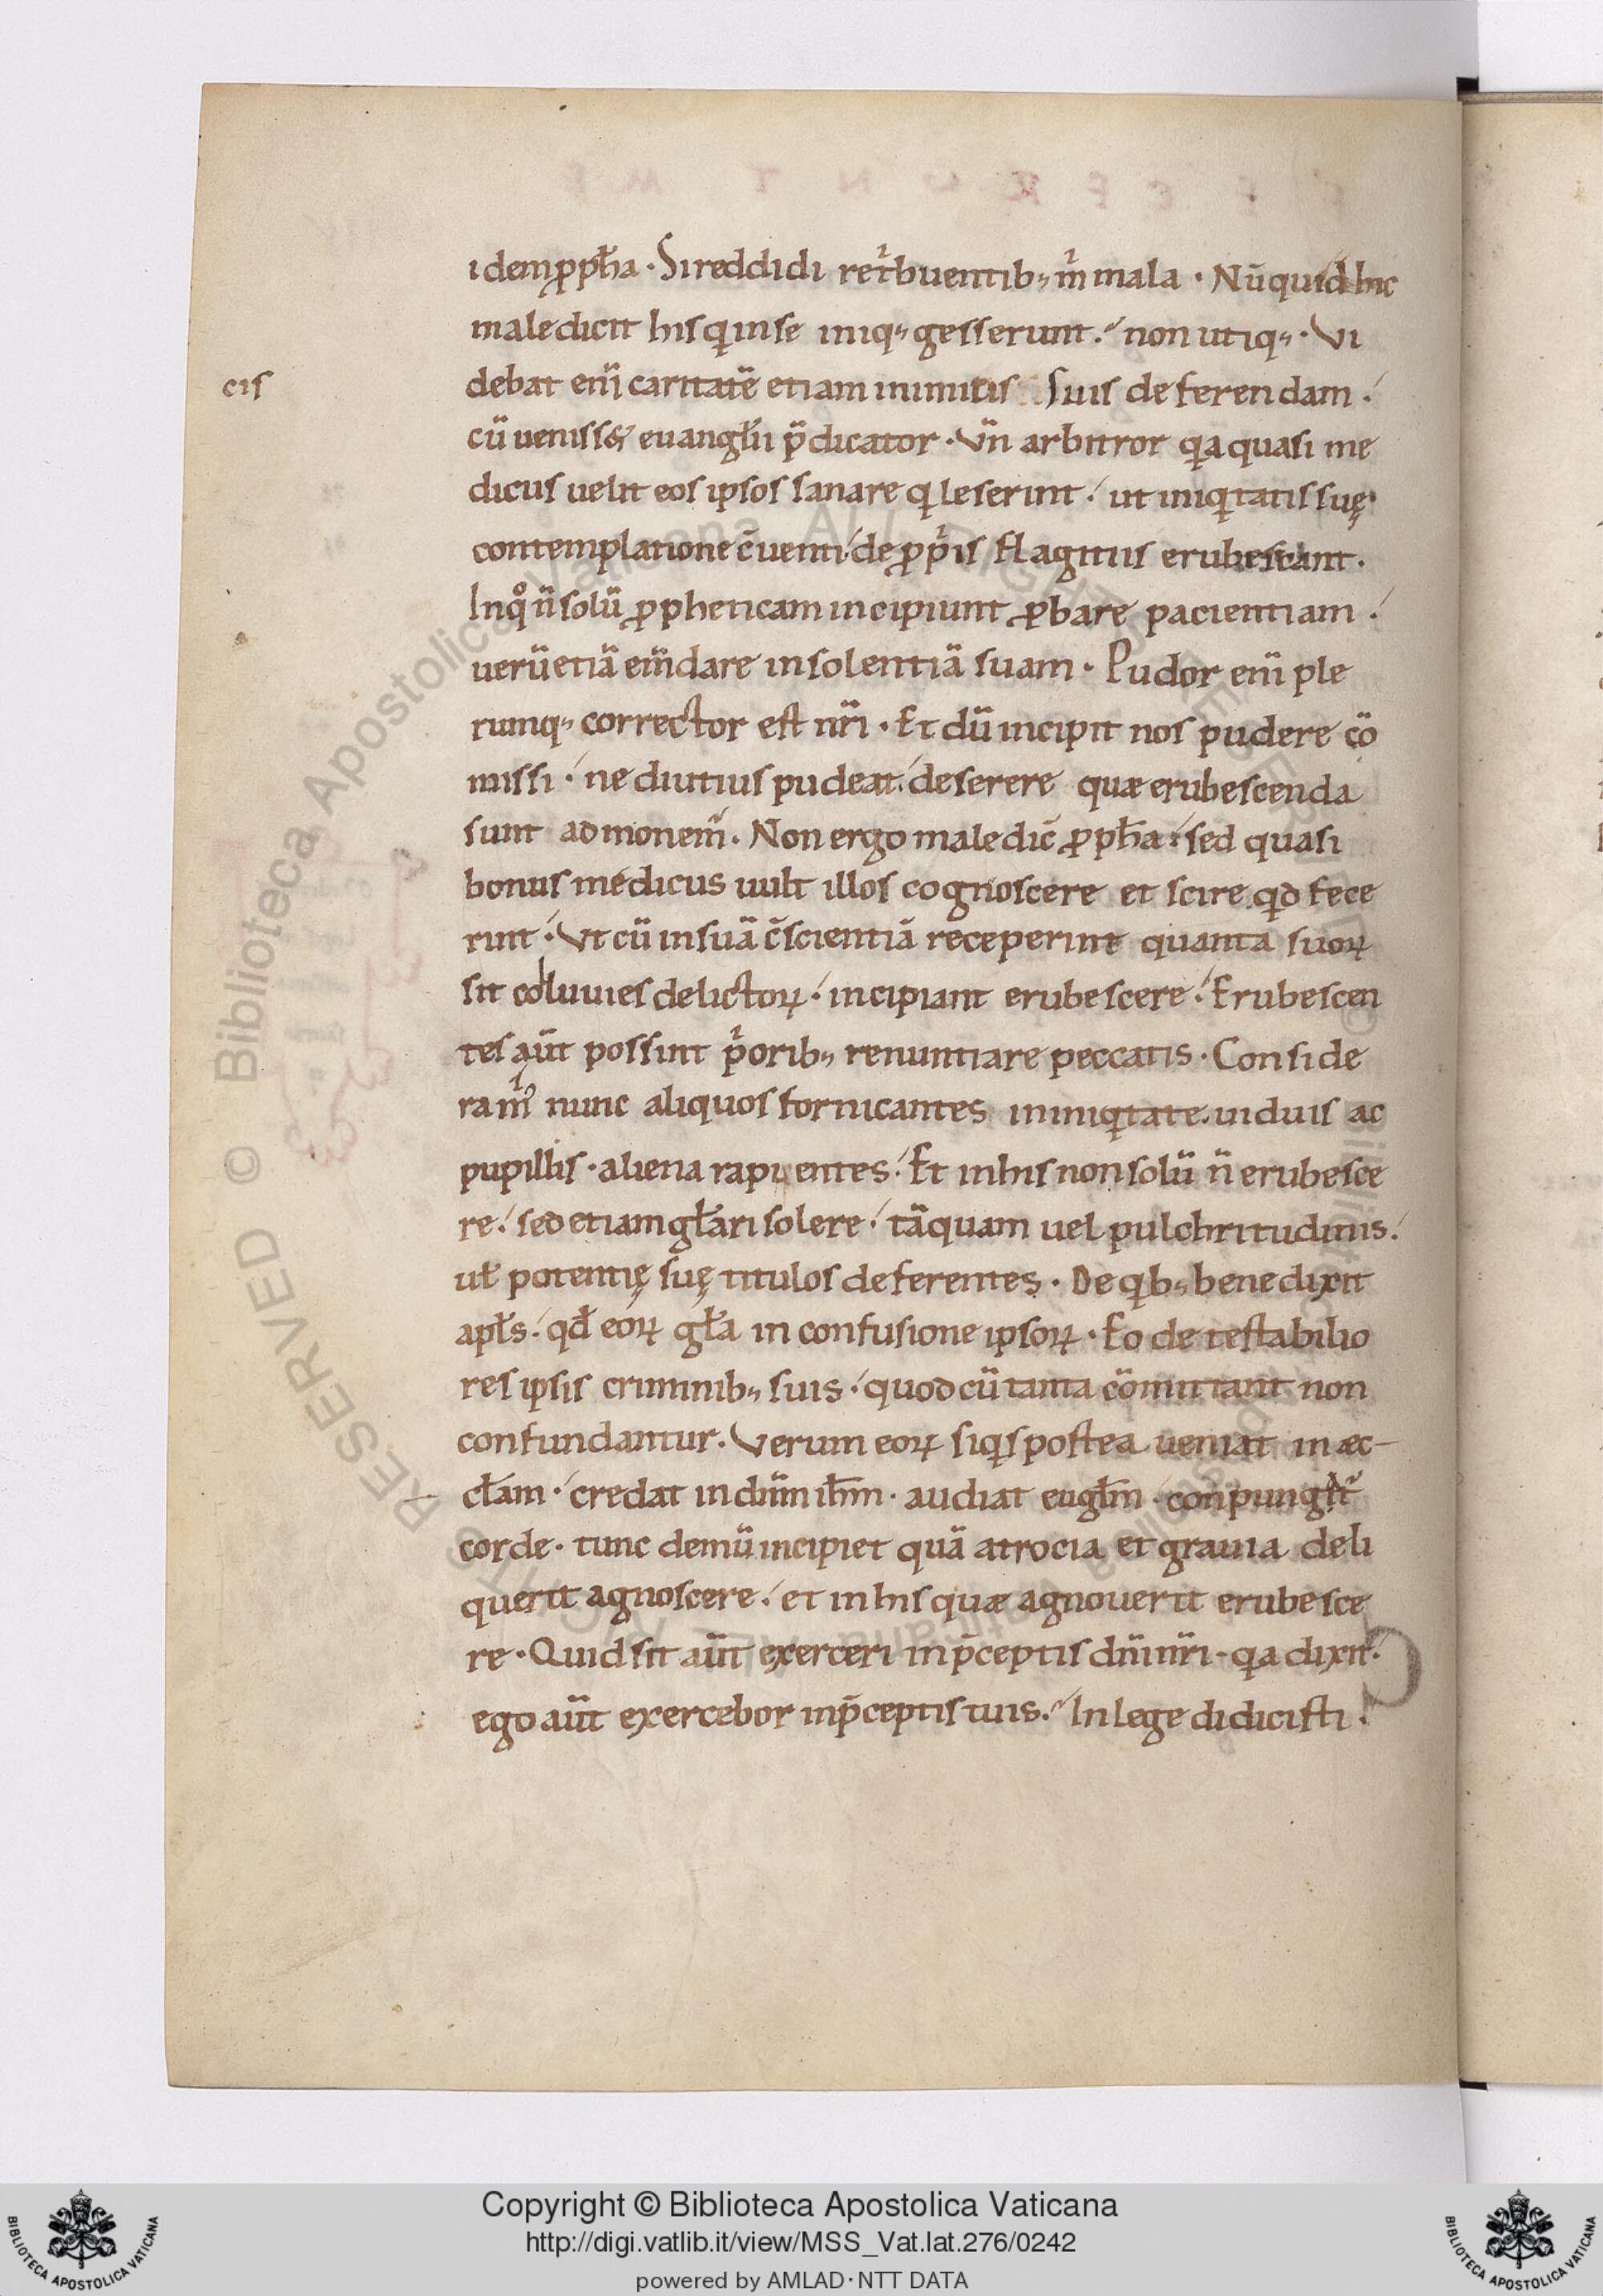 idem ꝓph̅a · Si reddidi ret͛buentib; m͛ mala · Nū quid hic
maledicit his q̇ in se iniq; gesserunt ·՛ non utiq; · Vi
cis
debat eni̅ caritatē etiam inimitis suis deferendam ·՛
cū ueniss& euangl̅ii p̄dicator · Vn̄ arbitror qa quasi me
dicus uelit eos ipsos sanare q̇ leserint ·՛ ut iniqͥtatis suę
contemplatione c̄uenti ՛ de ꝓpͥis flagitiis erubescant ·
In qͦ n̄ solū ꝓpheticam incipiunt ꝓbare pacientiam ·՛
uerū etiā em̄dare insolentiā suam · Pudor eni̅ ple
rumq; corrector est nr̄i · Et dū incipit nos pudere cō
missi ·՛ ne diutius pudeat ·՛ deserere quæ erubescenda
sunt admonem̄ · Non ergo maledic̄ ꝓph̅a ·՛ sed quasi
bonus medicus uult illos cognoscere et scire qd fece
rint ·՛ Vt cū in suā c̄scientiā receperint quanta suoꝝ
sit colluuies delictoꝝ ·՛ incipiant erubescere ·՛ Erubescen
tes aūt possint pͥorib; renuntiare peccatis · Conside
ram᾽ nunc aliquos fornicantes in iniqͥtate · uiduis ac
pupillis · aliena rapientes ·՛ Et in his non solū n̄ erubesce
re ·՛ sed etiam gl̅ari solere ·՛ tāquam uel pulchritudinis ·՛
ul̅ potentię suę titulos deferentes · De qͥb; bene dixit
apl̅s ·՛ qd̅ eoꝝ gl̅a in confusione ipsoꝝ · Eo detestabilio
res ipsis criminib; suis ·՛ quod cū tanta cōmittant non
confundantur · Verum eoꝝ siqͥs postea ueniat in æc-
cl̅am ·՛ credat in dn̄m ih̅m · audiat eugl̅m · conpungit͛
corde · tunc demū incipiet quā atrocia et grauia deli
querit agnoscere ·՛ et in his quæ agnouerit erubesce
re · Quid sit aūt exerceri in p̄ceptis dn̄i nr̄i - qa dixit ·՛
ego aūt exercebor in p̄ceptis tuis ·՛ In lege didicisti ·
© Biblioteca Apostolica Vaticana
RESERVED
Copyright © Biblioteca Apostolica Vaticana
http://digi.vatlib.it/view/MSS_Vat.lat.276/0242
powered by AMLAD·NTT DATA
BIBLIOTECA APOSTOLICA VATICANA
BIBLIOTECA APOSTOLICA VATICANA